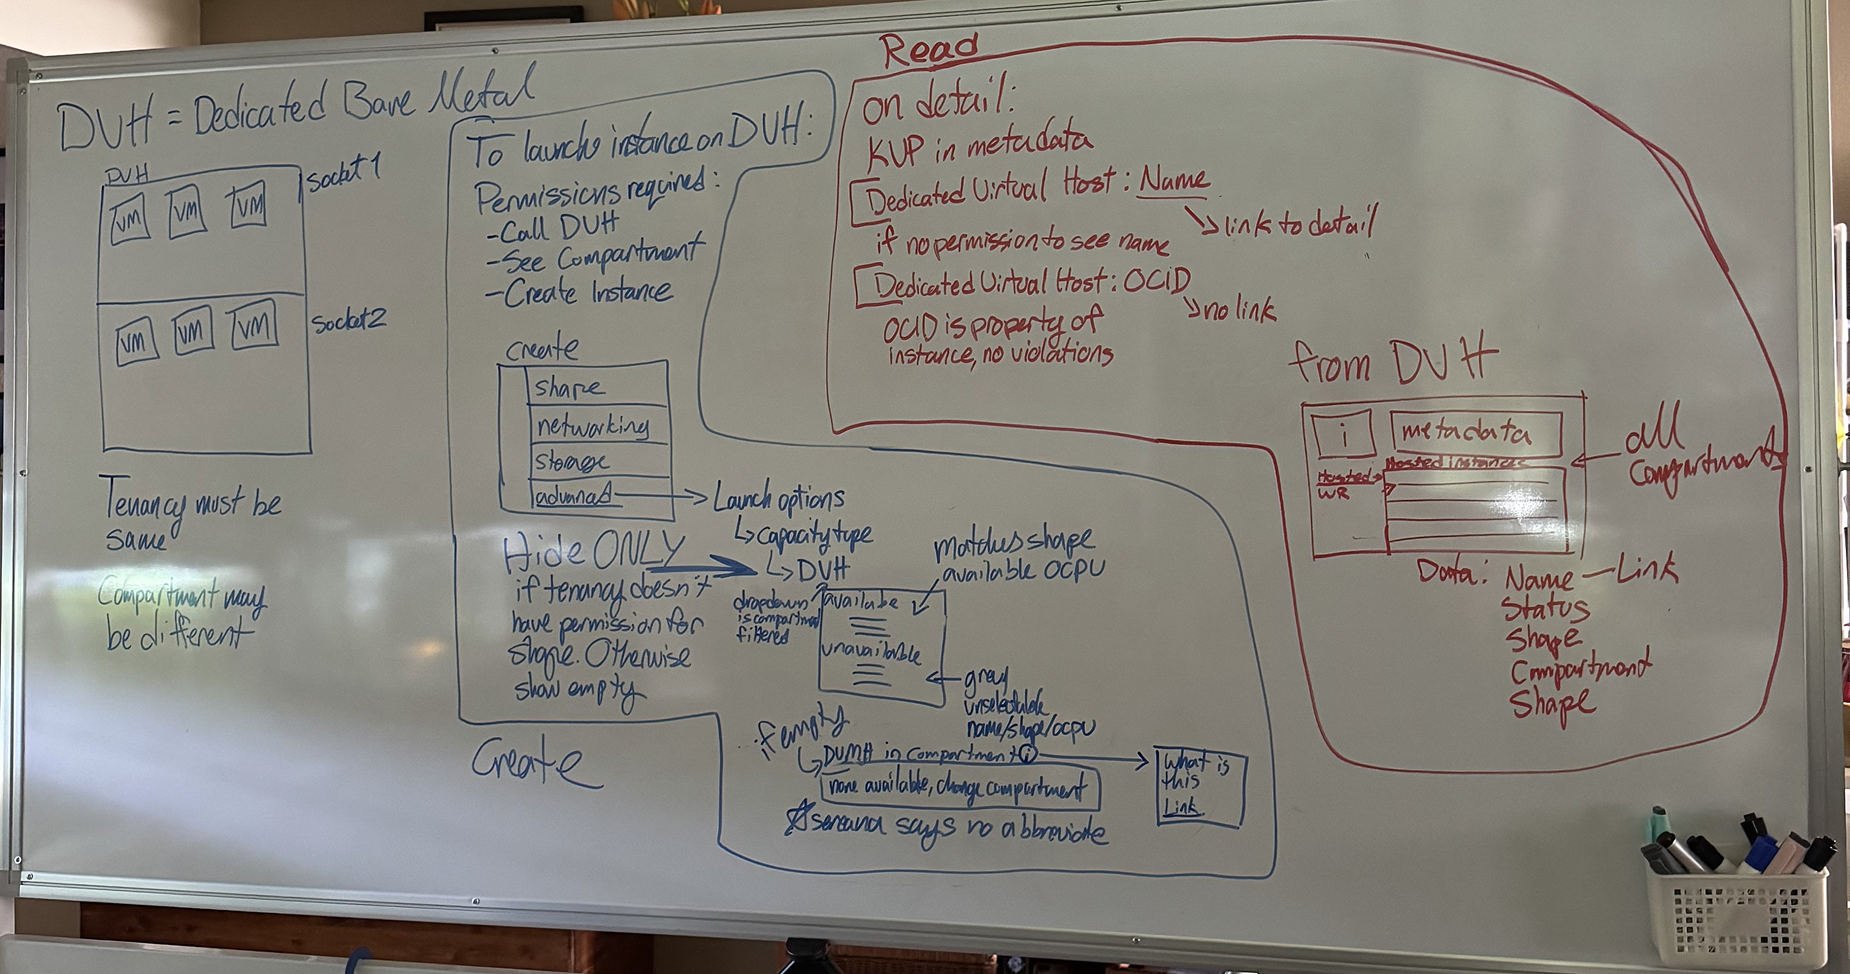 DVH = Dedicated Bare Metal
DVH
Socket 1
VM VM VM
Socket 2
VM VM VM
Tenancy must be
same
Compartment may
be different
To launch instance on DVH:
Permissions required:
- Call DVH
- See Compartment
- Create Instance
Create
shape
networking
storage
advanced
Launch options
Capacity type
DVH
Hide ONLY
if tenancy doesn't
have permission for
shape. Otherwise
show empty
dropdown
is compartment
filtered
available
unavailable
matches shape
available OCPU
gray
unselectable
name/shape/OCPU
if empty
DVMH in compartment i
none available, change compartment
What is
this
Link
says no abbreviate
Create
Read
on detail:
KVP in metadata
Dedicated Virtual Host: Name
link to detail
if no permission to see name
Dedicated Virtual Host: OCID
no link
OCID is property of
instance, no violations
from DVH
i
metadata
Hosted instances
Hosted
WR
all
Compartments
Data: Name — Link
Status
Shape
Compartment
Shape